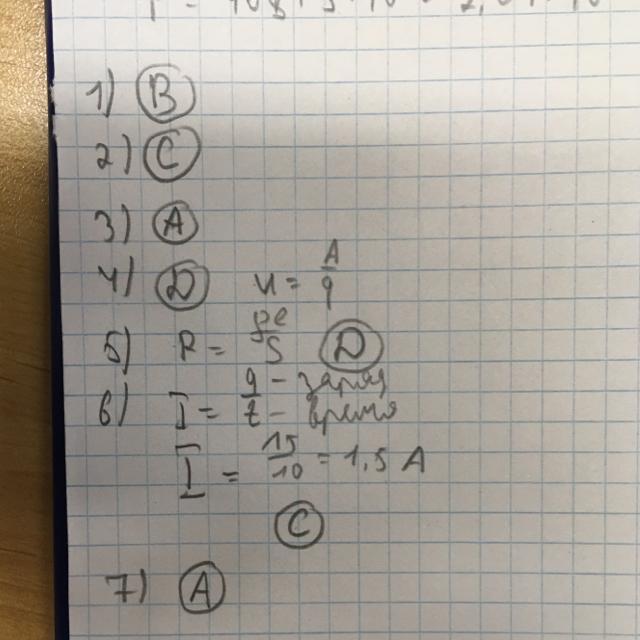 1) B
2) C
3) A
4) D u = A/q
5) R = ρl/S D
6) I = q/t - заряд - время
I = 15/10 = 1,5 A
C
7) A